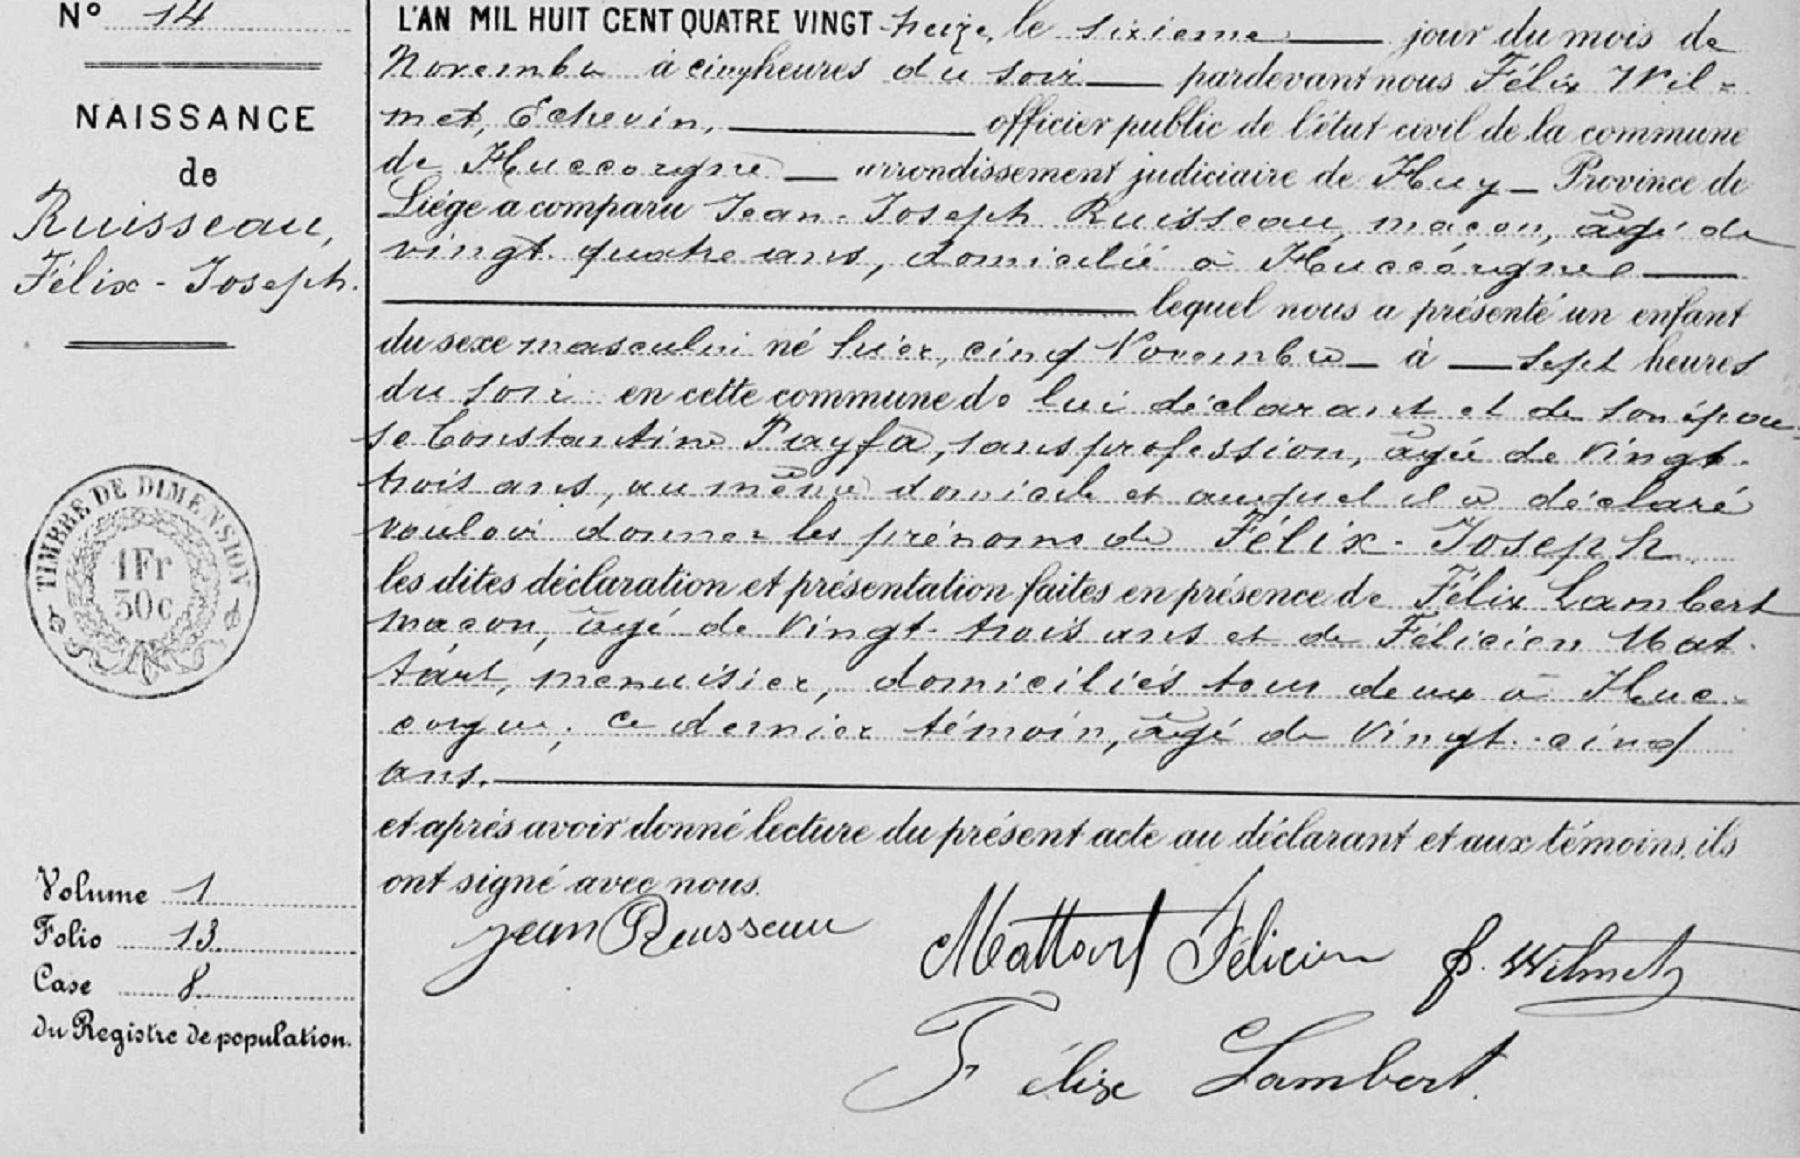 N° 14
NAISSANCE
de
Ruisseau,
Félix-Joseph.
TIMBRE DE DIMENSION
1Fr
30c
Volume 1
Folio 13.
Case 8.
du Registre de population.
L'AN MIL HUIT CENT QUATRE VINGT treize, le sixieme jour du mois de
Novembre à cinq heures du soir pardevant nous Félix Wil=
met, Echevin, officier public de l'état civil de la commune
de Huccorgne arrondissement judiciaire de Huy Province de
Liége a comparu Jean-Joseph Ruisseau, maçon, âgé de
vingt-quatre ans, domicilié à Huccorgne
lequel nous a présenté un enfant
du sexe masculin né hier, cinq Novembre à sept heures
du soir en cette commune de lui déclarant et de son épou-
se Constantine Fayfa, sans profession, âgée de vingt-
trois ans, au même domicile et auquel il a déclaré
vouloir donner les prénoms de Félix-Joseph
les dites déclaration et présentation faites en présence de Félix Lambert
maçon, âgé de vingt-trois ans et de Félicien Mat-
tart, menuisier, domiciliés tous deux à Huc-
corgne; ce dernier témoin, âgé de vingt-cinq
ans.
et après avoir donné lecture du présent acte au déclarant et aux témoins, ils
ont signé avec nous.
Jean Ruisseau
Mattart Félicien
F. Wilmet
Félix Lambert.